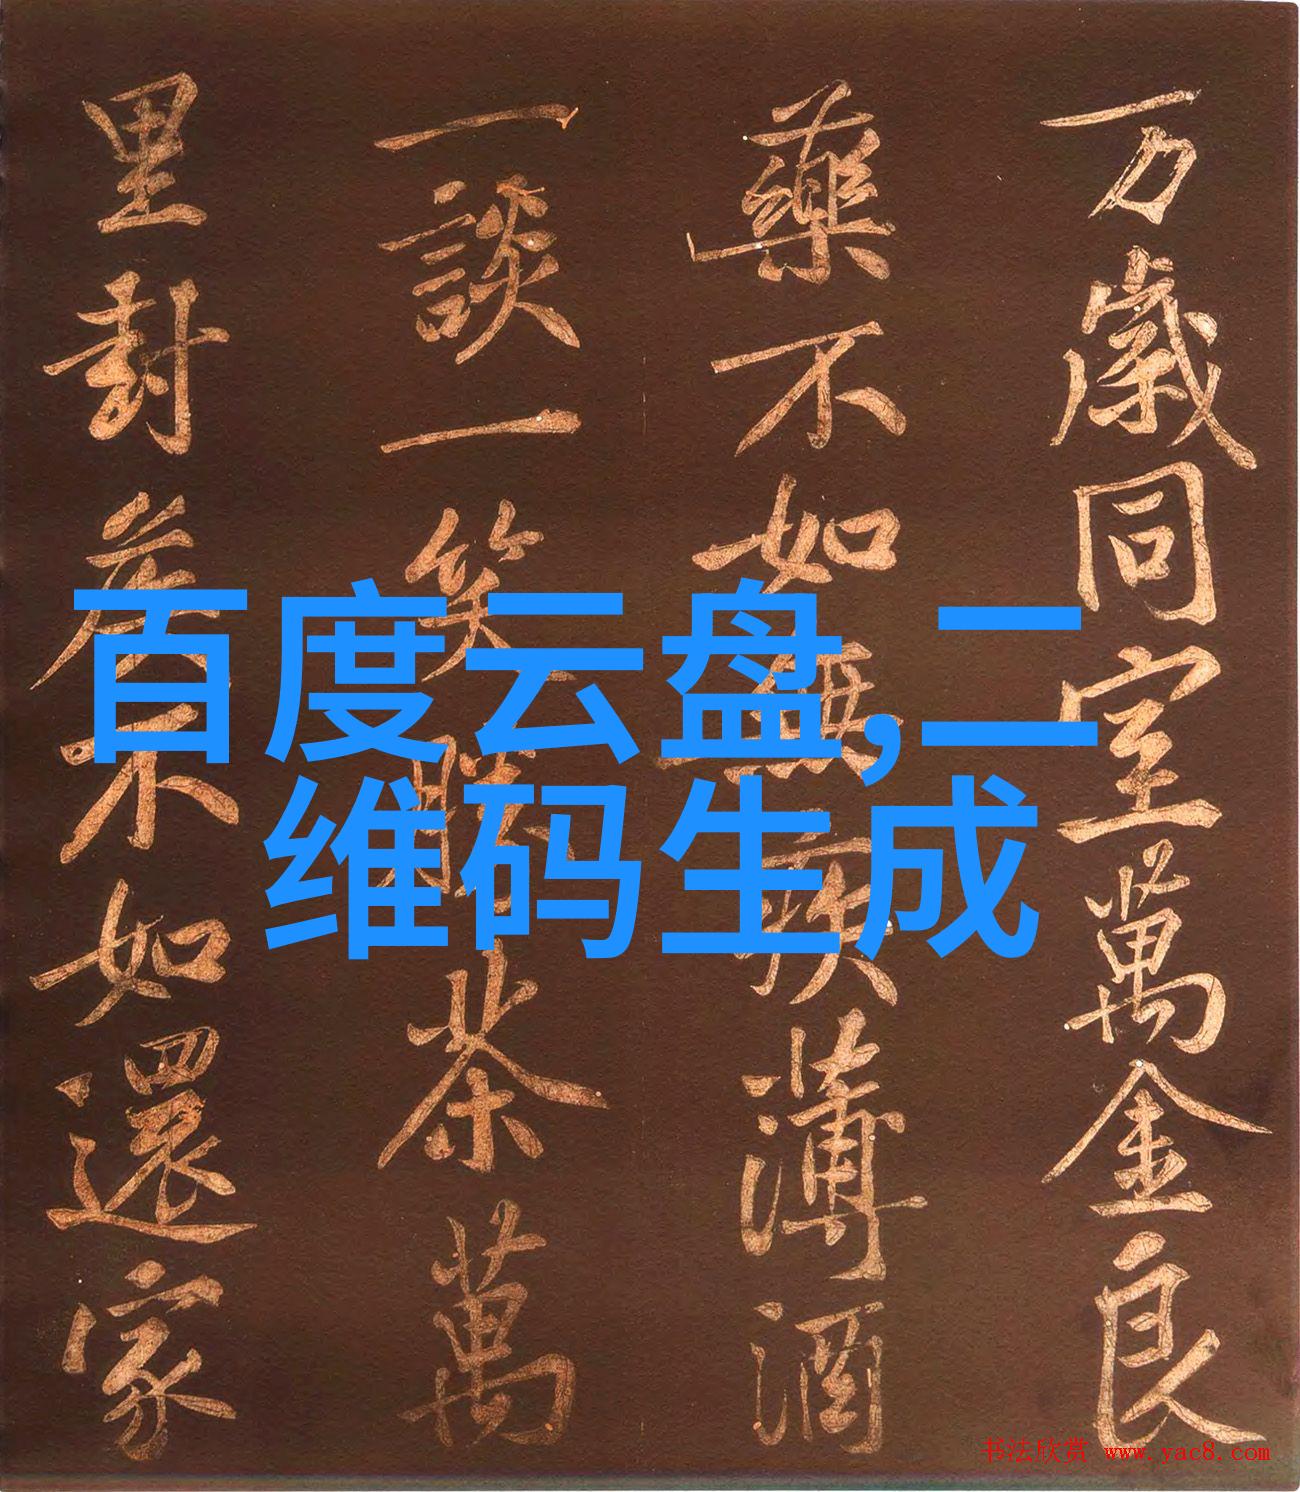 万歲同室萬金良
藥不如無疾薄酒
一談一笑勝茶萬
里封侯不如還家
百度云盘,二
维码生成
书法欣赏 www.yac8.com